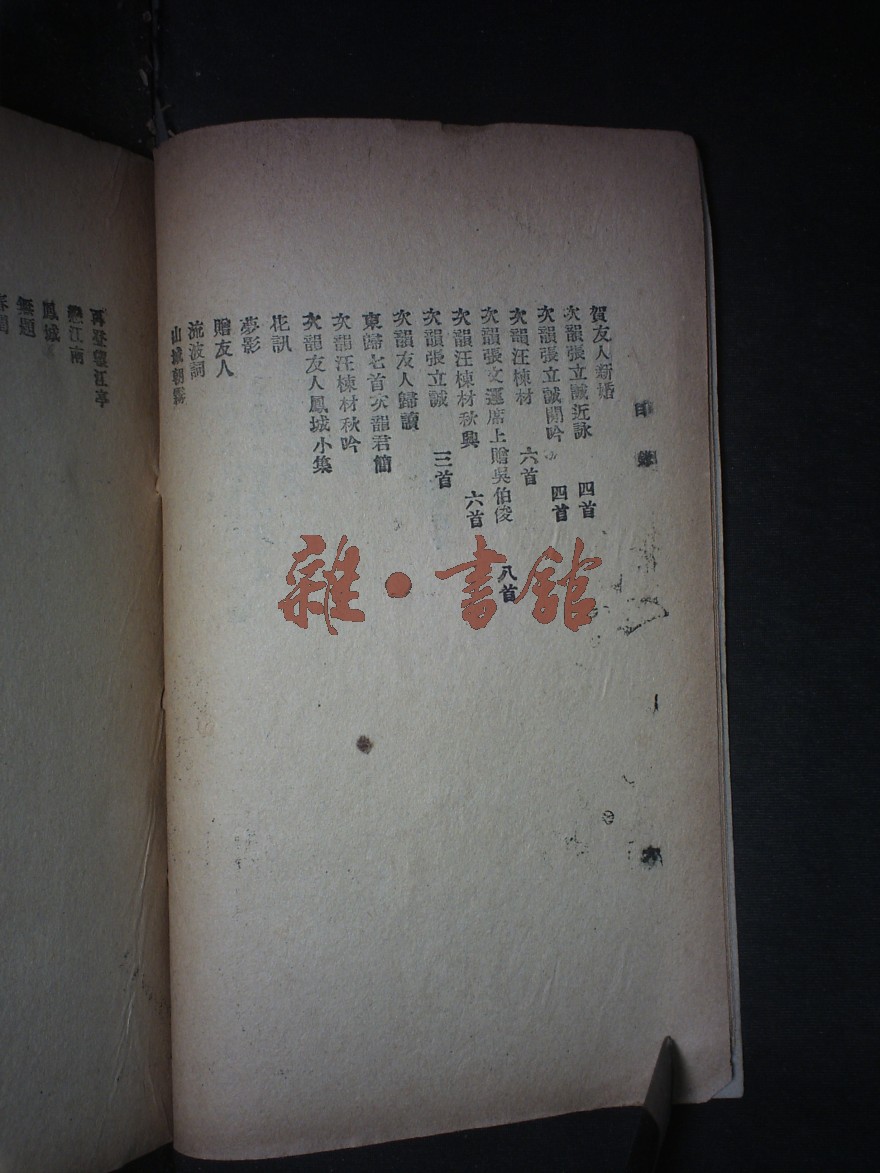 目錄
賀友人新婚
次韻張立誠近詠 四首
次韻張立誠閒吟 四首
次韻汪棟材 六首
次韻張文運席上贈吳伯俊 八首
次韻汪棟材秋興 六首
次韻張立誠 三首
次韻友人歸讀
東歸七首次韻君簡
次韻汪棟材秋吟
次韻友人鳳城小集
花訊
夢影
贈友人
流波詞
山城朝霧
再登望江亭
戀江南
鳳城
無題
雜·書館